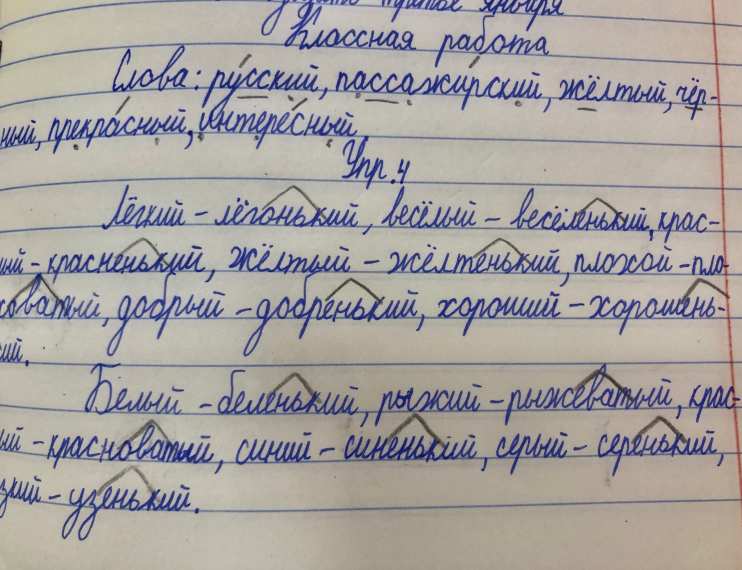 третье января
Классная работа
Слова: русский, пассажирский, жёлтый, чёр-
ный, прекрасный, интересный.
Упр. 4
Лёгкий - лёгонький, весёлый - весёленький, крас-
ный - красненький, жёлтый - жёлтенький, плохой - пло-
ховатый, добрый - добренький, хороший - хорошень-
кий.
Белый - беленький, рыжий - рыжеватый, крас-
ный - красноватый, синий - синенький, серый - серенький,
узкий - узенький.